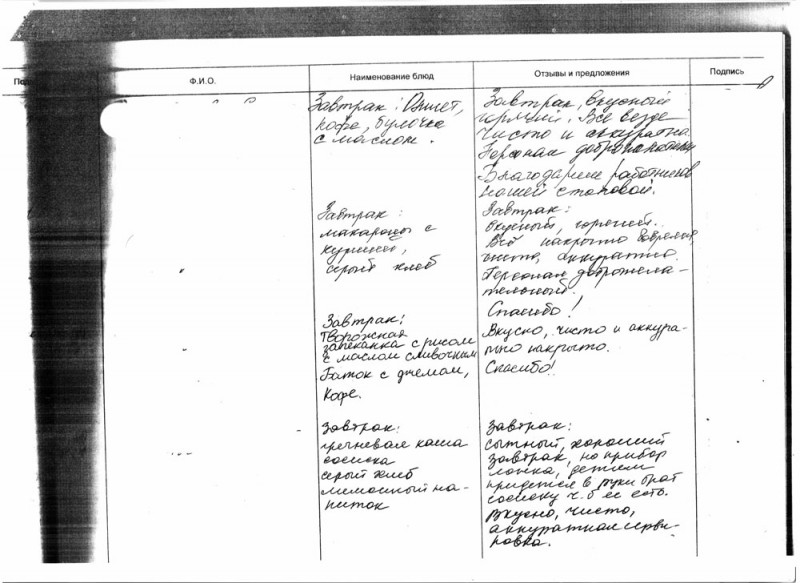 Ф.И.О.
Наименование блюд
Отзывы и предложения
Подпись
Завтрак: Омлет,
кофе, булочка
с маслом.
Завтрак, вкусный
горячий. Все везде
чисто и аккуратно.
Персонал
Благодарим работников
нашей столовой.
Завтрак:
макароны с
курицей,
серый хлеб
Завтрак:
вкусный, горячий.
Всё накрыто вовремя,
чисто, аккуратно.
Персонал доброжела-
тельный.
Спасибо!
Завтрак:
Творожная
запеканка с рисом
с маслом сливочным
Батон с джемом,
Кофе.
Вкусно, чисто и аккура-
тно накрыто.
Спасибо!
Завтрак:
гречневая каша
сосиска
серый хлеб
лимонный на-
питок
Завтрак:
сытный, хороший
завтрак, но прибор
ложка, детям
придется в руки брат
сосиску ч.б ее есть.
Вкусно, чисто,
аккуратная серви-
ровка.